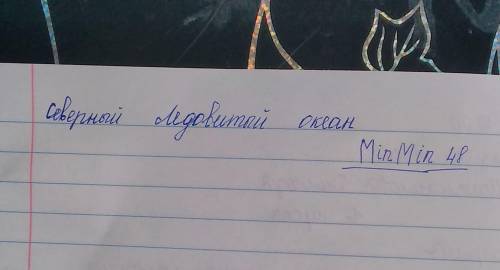 северный Ледовитой океан
MinMin 48